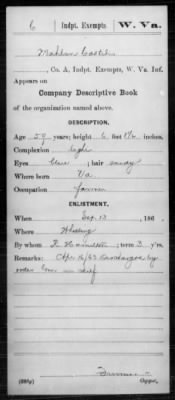 C | Indpt. Exempts | W. Va.
, Co. A, Indpt. Exempts, W. Va. Inf.
Appears on
Company Descriptive Book
of the organization named above.
DESCRIPTION.
Age 59 years; height 6 feet inches.
Complexion Light
Eyes blue; hair sandy
Where born Va
Occupation farmer
ENLISTMENT.
When Sep. 13, 186
Where Wheeling
By whom Hamilton; term 3 y'rs.
Remarks: Apr 16/63 Discharged by
order Com in chief
Copyist.